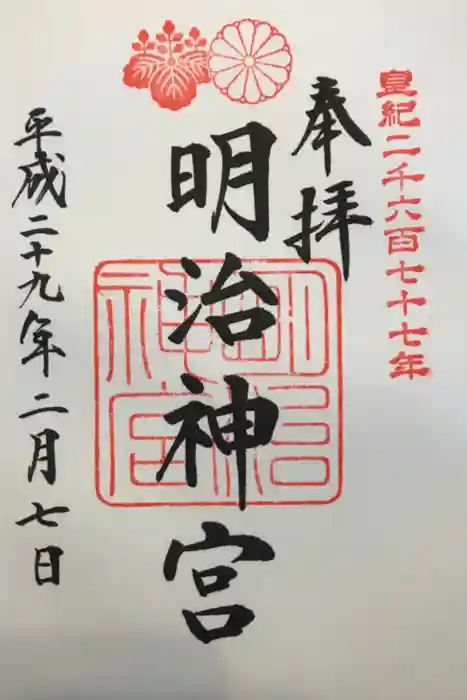 皇紀二千六百七十七年
奉拝
明治神宮
明治神宮
平成二十九年二月七日